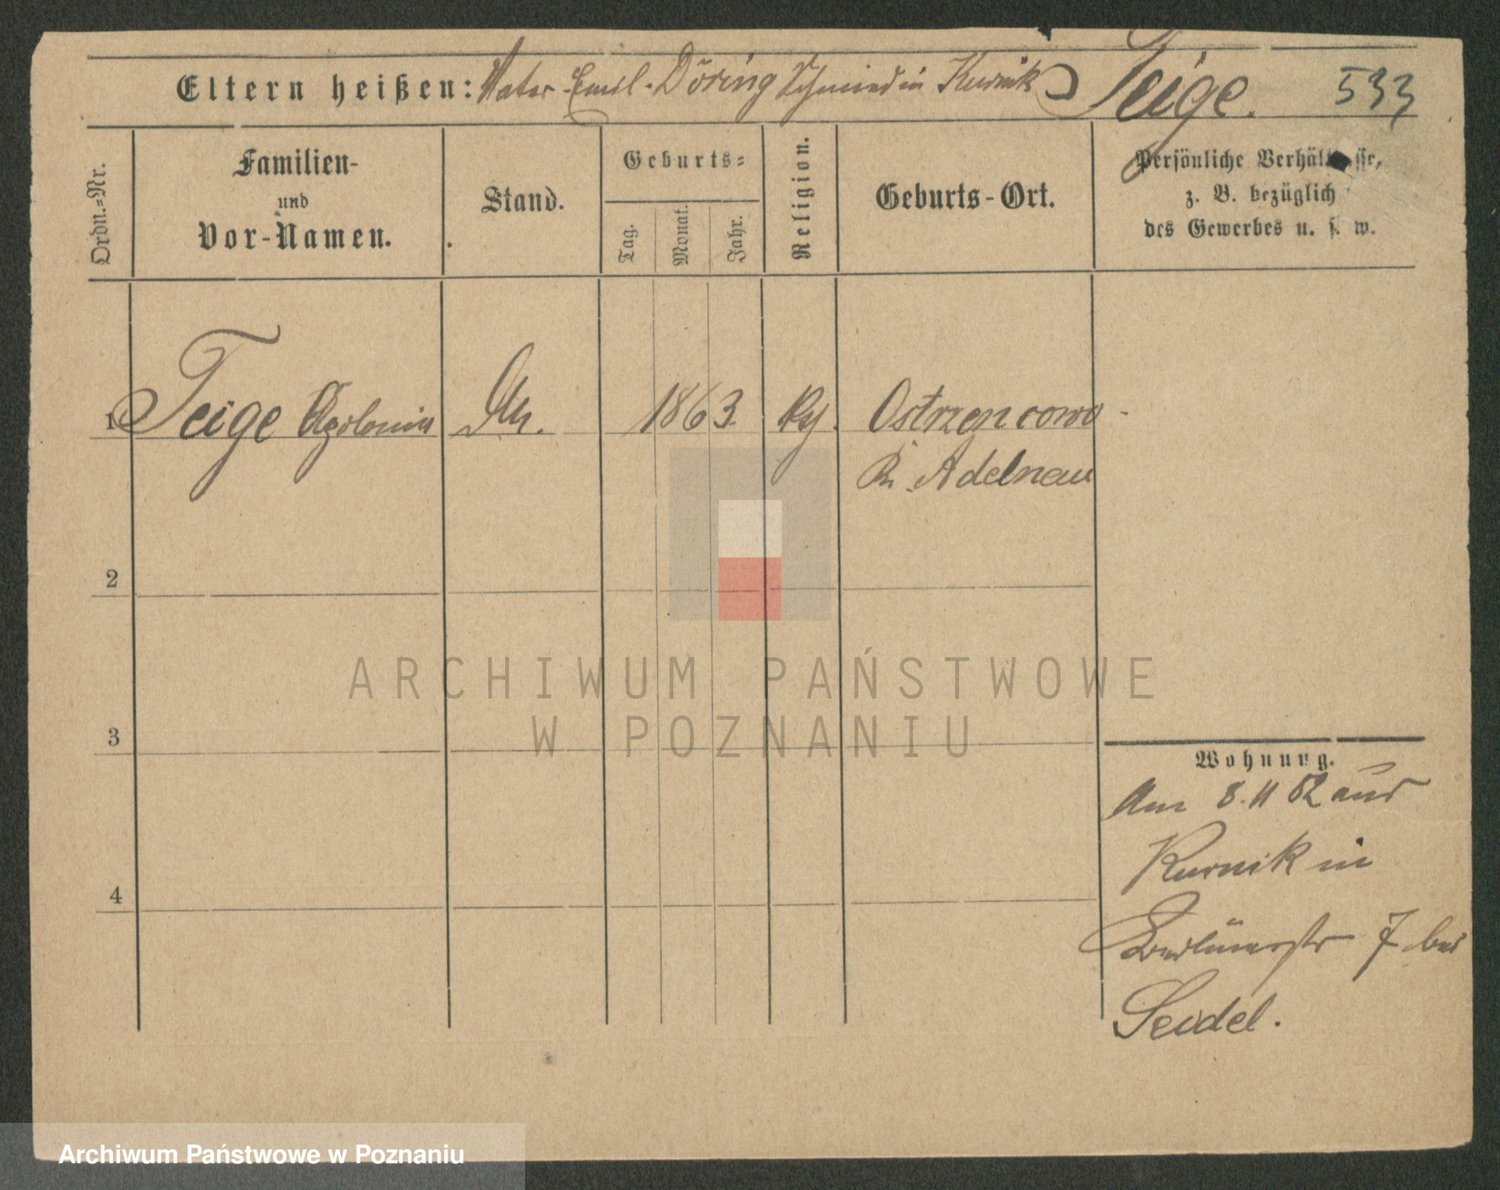 Eltern heißen: Vater Emil Döring Schmied in Kurnik Teige. 533
Ordn.-Nr.
Familien-
und
Vor-Namen.
Stand.
Geburts-
Tag.
Monat.
Jahr.
Religion.
Geburts-Ort.
Persönliche Verhältnisse,
z. B. bezüglich
des Gewerbes u. s. w.
1 Teige Apolonia 1863. Ostrzencowo
Adelnau
2
3
4
Wohnung.
Am 8.11 82 aus
Kurnik in
Berlinerstr 7 bei
Seidel.
ARCHIWUM PAŃSTWOWE
W POZNANIU
Archiwum Państwowe w Poznaniu